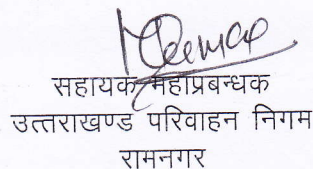 सहायक महाप्रबन्धक
उत्तराखण्ड परिवाहन निगम
रामनगर